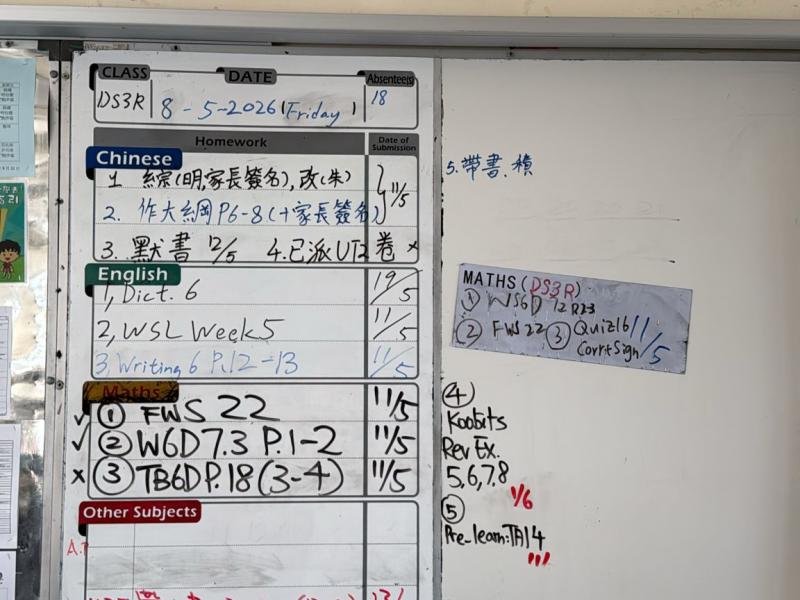 CLASS DATE Absentee(s)
DS3R 8-5-2026 (Friday) 18
Homework Date of Submission
Chinese
1. 綜(明,家長簽名),改(朱)
2. 作大綱P6-8(+家長簽名) } 11/5
3. 默書 12/5 4.已派UT2卷 x
5.帶書.積
English
1, Dict. 6 19/5
2, WSL Week 5 11/5
3, Writing 6 P.12-13 11/5
Maths
✓ ① FWS 22 11/5
✓ ② W6D7.3 P.1-2 11/5
x ③ TB6D P.18 (3-4) 11/5
Other Subjects
MATHS (DS3R)
① WS6D
② FWS 22 ③ Quiz16 11/5
Corr+Sign
④
Koobits
Rev Ex.
5,6,7,8
1/6
⑤
Pre-learn: TA14